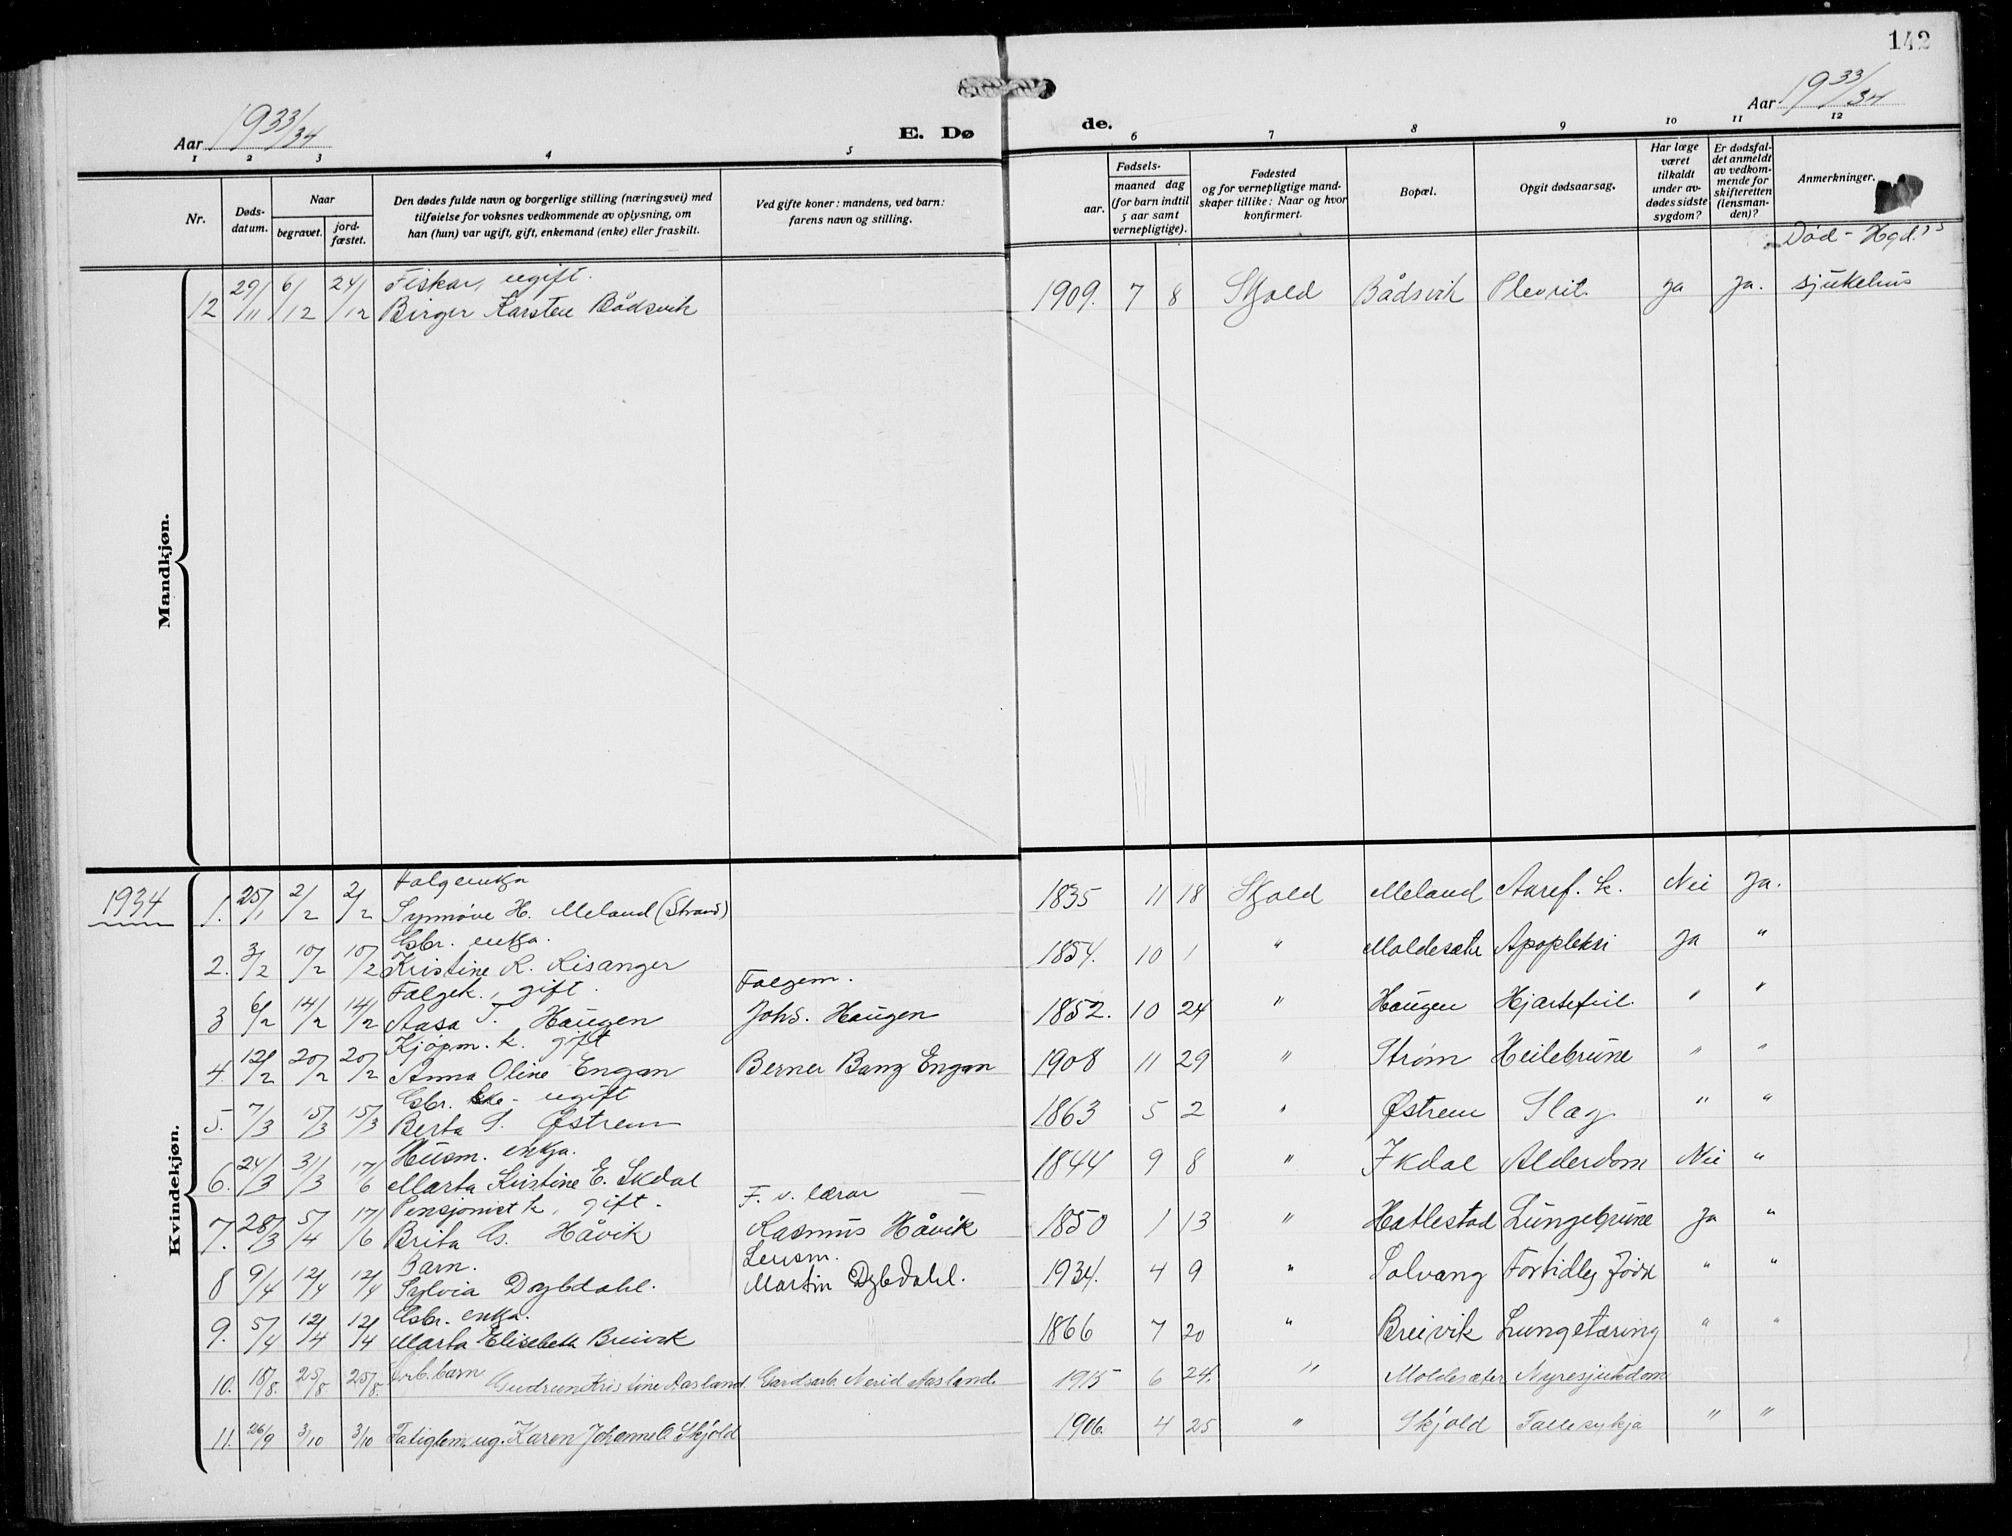 142
Aar 1933/34
E. Dø
de.
Aar 1933/34
1 2 3 4 5 6 7 8 9 10 11 12
Nr.
Døds-
datum.
Naar
begravet.
jord-
fæstet.
Den dødes fulde navn og borgerlige stilling (næringsvei) med
tilføielse for voksnes vedkommende av oplysning, om
han (hun) var ugift, gift, enkemand (enke) eller fraskilt.
Ved gifte koner: mandens, ved barn:
farens navn og stilling.
aar.
Fødsels-
maaned dag
(for barn indtil
5 aar samt
vernepligtige).
Fødested
og for vernepligtige mand-
skaper tillike: Naar og hvor
konfirmert.
Bopæl.
Opgit dødsaarsag.
Har læge
været
tilkaldt
under av-
dødes sidste
sygdom?
Er dødsfal-
det anmeldt
av vedkom-
mende for
skifteretten
(lensman-
den)?
Anmerkninger.
Mandkjøn.
Fiskar, ugift. Død - Hgd.
12 29/11 6/12 24/12 Birger Karsten Bådsvik 1909. 7 8 Skjold Bådsvik Plevrit. ja ja. sjukehus
1934
Kvindekjøn.
Folgeenkja
1. 25/1 2/2 2/2 Synnøve H. Meland (Strand) 1835 11 18 Skjold Meland Nei ja.
Gbr. enkja.
2. 3/2 10/2 10/2 Kristine R. Risanger 1854. 10 1 " Moldesæte Apopleksi ja "
Folgek., gift. Folgem.
3 6/2 14/2 14/2 Aasa T. Haugen Johs. Haugen 1852. 10 24 " Haugen Hjartefeil. " "
Kjøpm. k. gift
4. 12/2 20/2 20/2 Anna Oline Engan Berner Bang Engan 1908 11 29 " Strøm Heilebrune " "
Gbr. ugift
5. 7/3 15/3 15/3 Berta S. Østrem 1863 5 2 " Østrem Slag " "
Husm. enkja.
6. 24/3 31/3 17/6 Marta Kristine E. Ikdal 1844 9 8 " Ikdal Alderdom Nei "
Pensjonist k. gift. F. v. lærar
7. 28/3 5/4 17/6 Brita G. Håvik Rasmus Håvik 1850 1 13 " Hatlestad Lungebrune ja "
Barn. Lensm.
8 9/4 12/4 12/4 Sylvia Dybdahl. Martin Dybdahl. 1934. 4 9 " Solvang Fortidleg fødd " "
Gbr. enkja.
9. 5/4 12/4 12/4 Marta Elisabeth Breivik 1866 7 20 " Breivik Lungetæring " "
10. 18/8. 25/8 25/8. Arb. barn Gudrun Kristine Aasland. Gardsarb. Nerid Aasland. 1915 6 24. " Moldesæter Nyresjukdom
11. 26/9 3/10 3/10 Fatiglem, ug. Karen Johannes Skjold 1906. 4 25 " Skjold Fallesykja " "